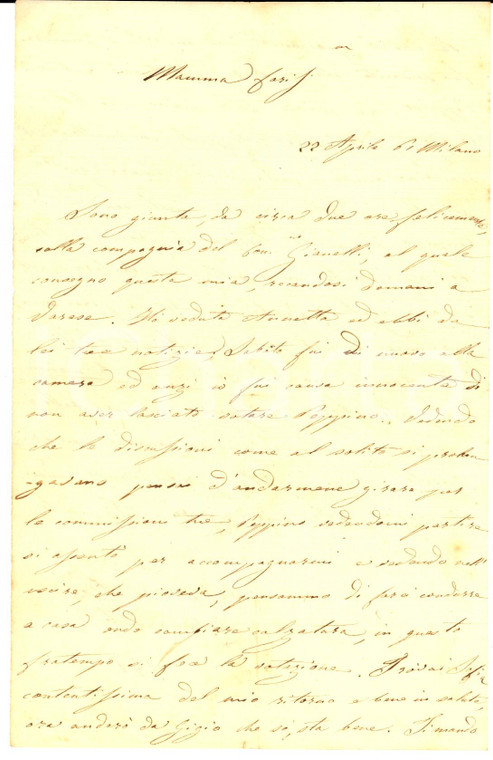 Mamma Cariss.
22 Aprile 61 Milano
Sono giunta, da circa due ore felicemente,
colla compagnia del Gianelli, al quale
consegno questa mia, recandosi domani a
Varese. Ho veduta Annetta ed ebbi da
lei tue notizie. Sabato fui di nuovo alla
camera ed anzi io fui causa innocente di
non aver lasciato votare Peppino. Vedendo
che le discussioni come al solito si prolun
-gavano pensai d'andarmene girare per
le commissioni tue, Peppino vedendomi partire
si assentò per accompagnarmi e vedendo nell'
uscire, che pioveva, pensammo di farci condurre
a casa onde cambiare calzatura, in questo
fratempo si fece la votazione. Trovai
contentissima del mio ritorno e bene in salute,
ora anderò da Gigio che so, sta bene. Ti mando